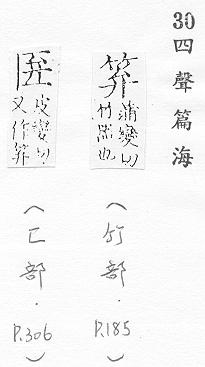 30 四聲篇海
笲 蒲變切
竹器也
(竹部．P.185)
匥 皮變切
又作笲
(匚部．P.306)